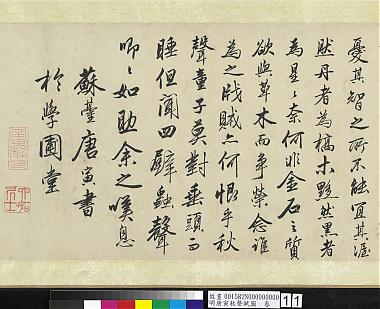 憂其智之所不能宜其渥
然丹者為槁木黟然黑者
為星〻奈何非金石之質
欲與草木而爭榮念誰
為之戕賊亦何恨乎秋
聲童子莫對垂頭而
睡但聞四壁蟲聲
唧〻如助余之嘆息
蘇臺唐寅書
於學圃堂
故畫001582N000000000
明唐寅秋聲賦圖 卷
11